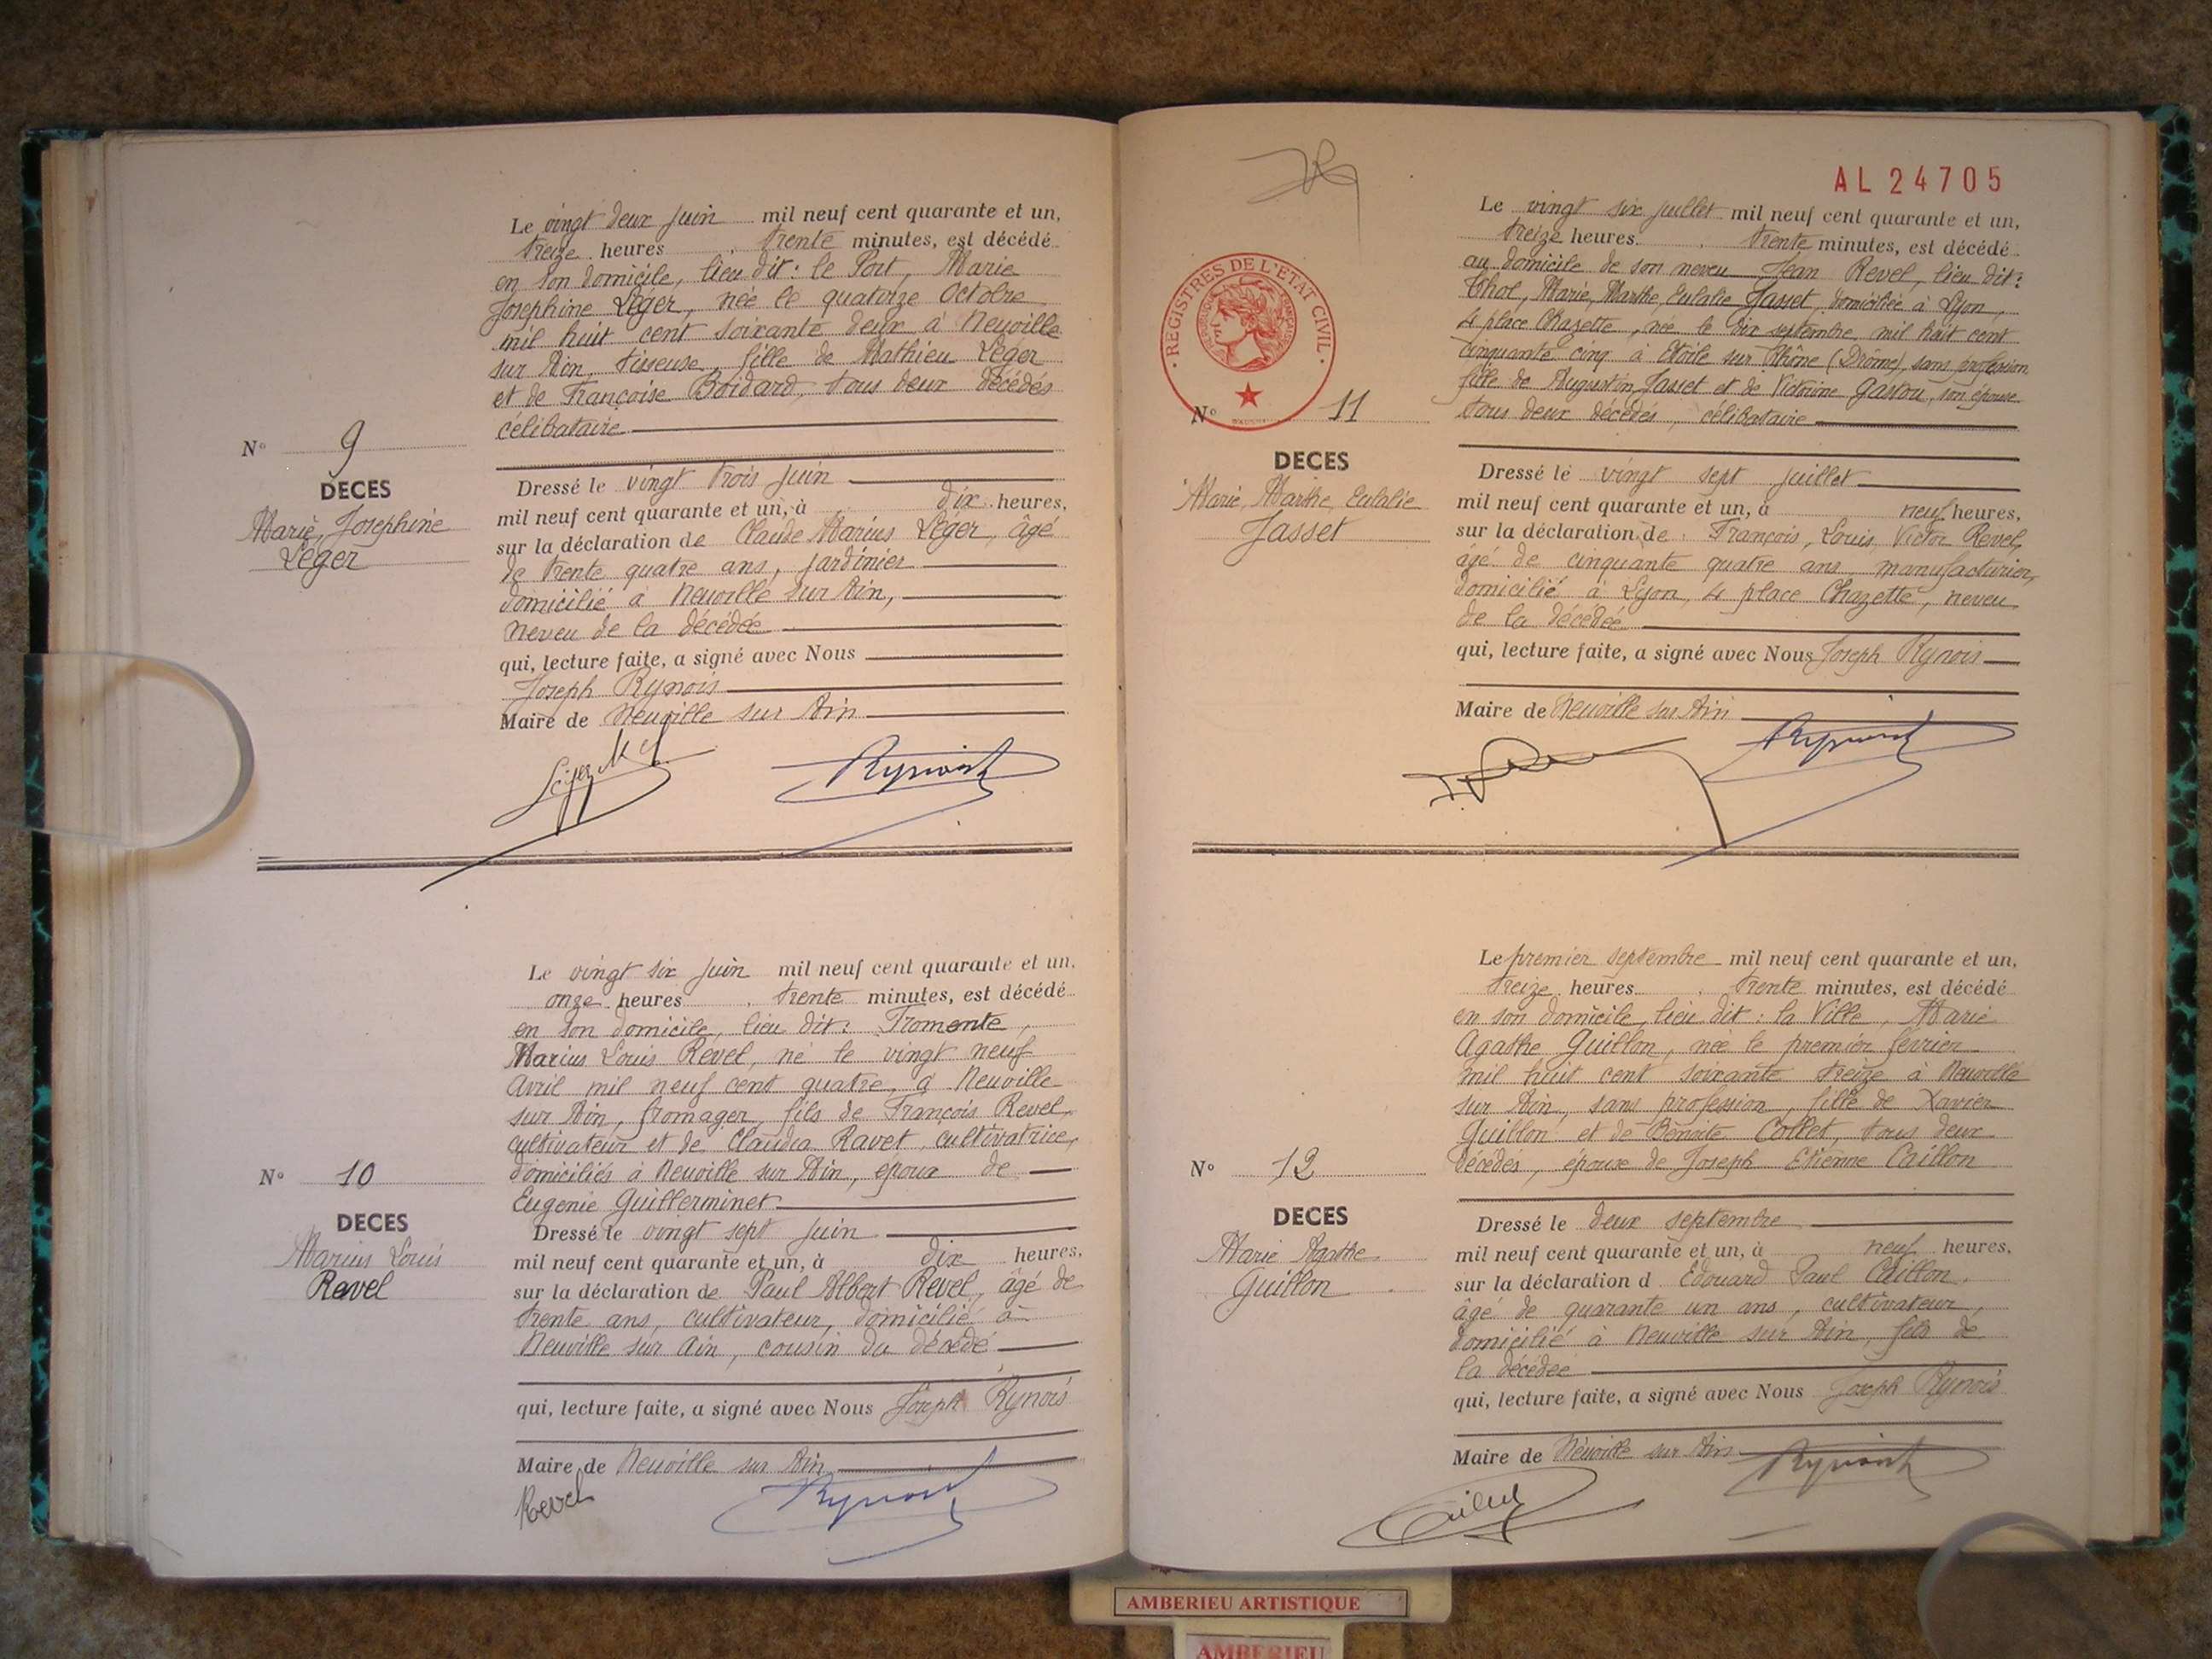 Le vingt deux juin mil neuf cent quarante et un,
treize heures trente minutes, est décédé
en son domicile, lieu dit: le Port, Marie
Josephine Léger, née le quatorze Octobre
mil huit cent soixante deux à Neuville
sur Ain, tisseuse, fille de Mathieu Léger
et de Françoise Boidard, tous deux décédés
célibataire
N° 9
DECES
Marie, Josephine
Léger
Dressé le vingt trois juin
mil neuf cent quarante et un, à dix heures,
sur la déclaration de Claude Marius Léger, âgé
de trente quatre ans, jardinier
domicilié à Neuville sur Ain,
neveu de la décédée
qui, lecture faite, a signé avec Nous
Joseph Rynois
Maire de Neuville sur Ain
Le vingt six juin mil neuf cent quarante et un.
onze heures trente minutes, est décédé
en son domicile, lieu dit: Fromente,
Marius Louis Revel, né le vingt neuf
avril mil neuf cent quatre, à Neuville
sur Ain, fromager, fils de François Revel,
cultivateur et de Claudia Ravet, cultivatrice,
domiciliés à Neuville sur Ain, époux de
Eugenie Guillerminet
N° 10
DECES
Marius Louis
Revel
Dressé le vingt sept juin
mil neuf cent quarante et un, à dix heures,
sur la déclaration de Paul Albert Revel, âgé de
trente ans, cultivateur, domicilié à
Neuville sur Ain, cousin du décédé
qui, lecture faite, a signé avec Nous Joseph Rynois
Maire de Neuville sur Ain
Revel
AL 24705
REGISTRES DE L'ETAT CIVIL
Le vingt six juillet mil neuf cent quarante et un,
treize heures trente minutes, est décédé
au domicile de son neveu Jean Revel, lieu dit:
Thol, Marie, Marthe, Eulalie Jasset, domiciliée à Lyon,
4 place Chazette, née le dix septembre mil huit cent
cinquante cinq à Etoile sur Rhône (Drome), sans profession
fille de Augustin Jasset et de Victorine Gastou, son épouse
tous deux décédés, célibataire
N° 11
DECES
Marie, Marthe, Eulalie
Jasset
Dressé le vingt sept juillet
mil neuf cent quarante et un, à neuf heures,
sur la déclaration de François, Louis, Victor Revel,
âgé de cinquante quatre ans, manufacturier,
domicilié à Lyon, 4 place Chazette, neveu
de la décédée
qui, lecture faite, a signé avec Nous Joseph Rynois
Maire de Neuville sur Ain
Le premier septembre mil neuf cent quarante et un,
treize heures trente minutes, est décédé
en son domicile, lieu dit: la Ville, Marie
Agathe Guillon, née le premier février
mil huit cent soixante treize à Neuville
sur Ain, sans profession, fille de Xavier
Guillon et de Benoite Collet, tous deux
décédés, épouse de Joseph Etienne Caillon
N° 12
DECES
Marie Agathe
Guillon
Dressé le deux septembre
mil neuf cent quarante et un, à neuf heures,
sur la déclaration d Edouard Paul Caillon,
âgé de quarante un ans, cultivateur,
domicilié à Neuville sur Ain, fils de
la décédée
qui, lecture faite, a signé avec Nous Joseph Rynois
Maire de Neuville sur Ain
AMBERIEU ARTISTIQUE
AMBERIEU